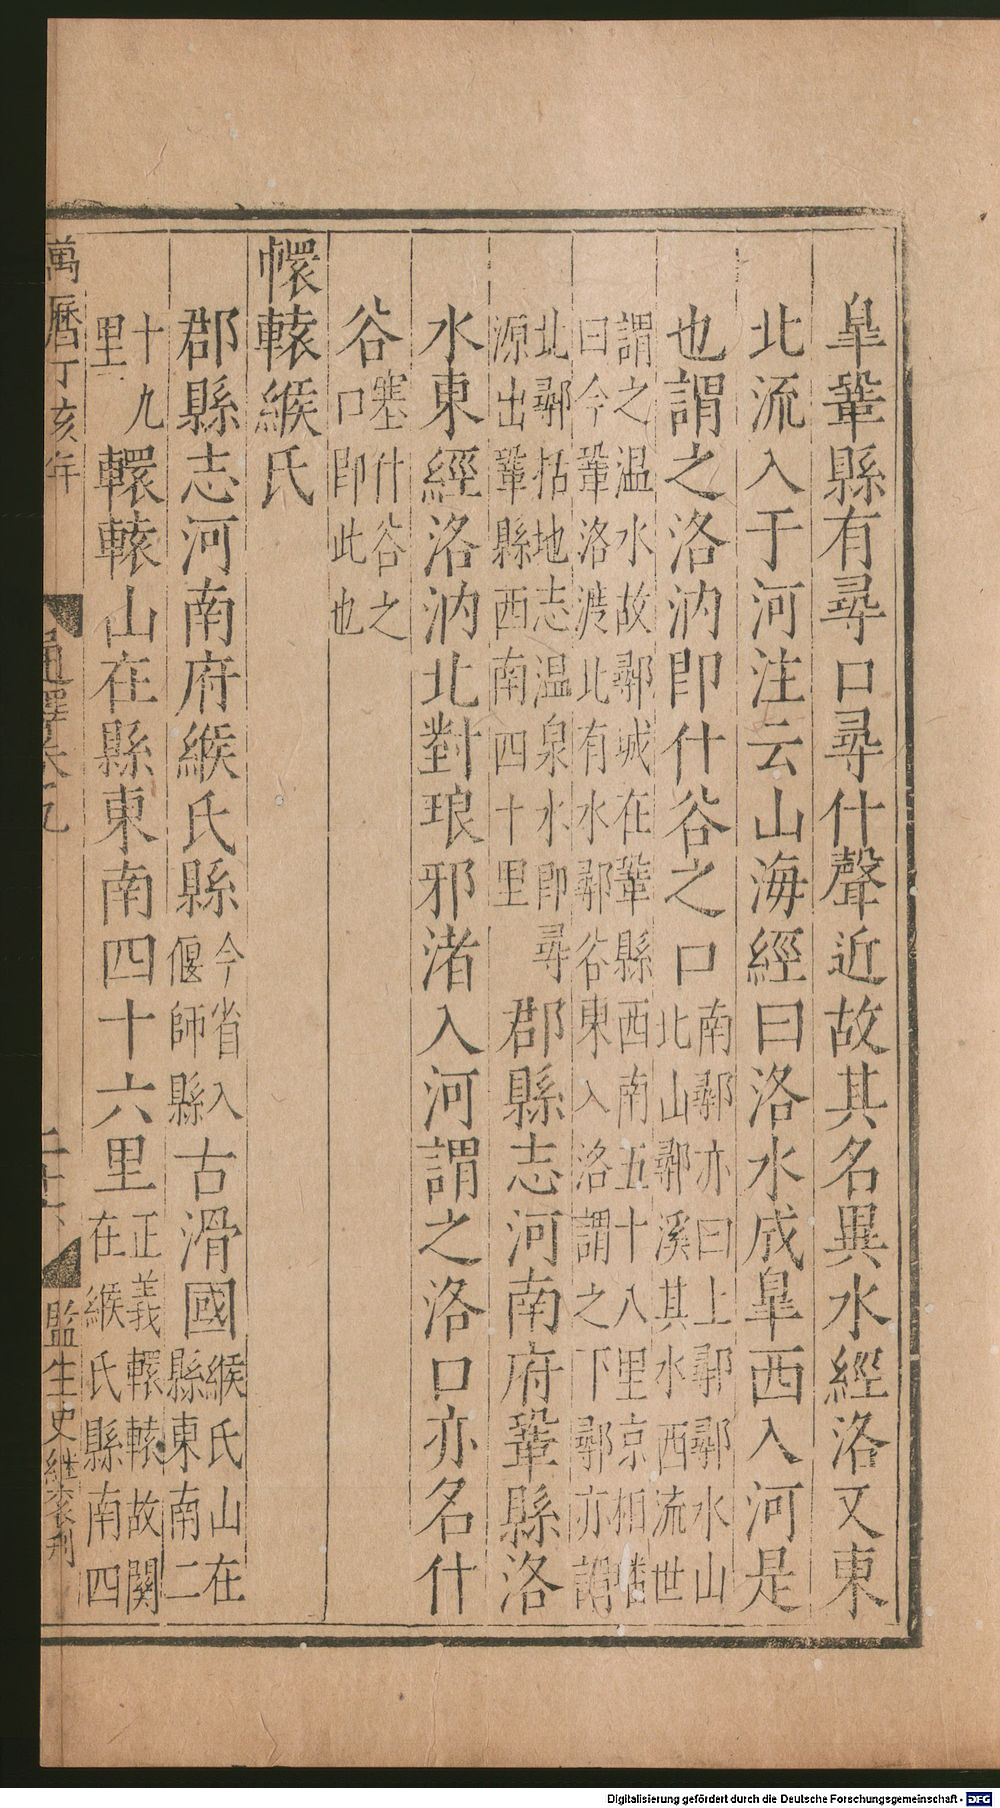 皐鞏縣有尋口尋什聲近故其名異水經洛又東
北流入于河注云山海經曰洛水成皐西入河是
也謂之洛汭卽什谷之口南鄩亦曰上鄩鄩水山北山鄩溪其水西流世
謂之温水故鄩城在鞏縣西南五十八里京相璠曰今鞏洛渡北有水鄩谷東入洛謂之下鄩亦謂
北鄩括地志温泉水卽尋源出鞏縣西南四十里郡縣志河南府鞏縣洛
水東經洛汭北對琅邪渚入河謂之洛口亦名什
谷塞什谷之口卽此也
轘轅緱氏
郡縣志河南府緱氏縣今省入偃師縣古滑國緱氏山在縣東南二
十九里轘轅山在縣東南四十六里正義轘轅故關在緱氏縣南四
萬曆丁亥年 通釋卷九 監生史繼裘刊
Digitalisierung gefördert durch die Deutsche Forschungsgemeinschaft - DFG